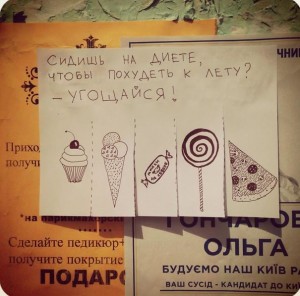 СИДИШЬ НА ДИЕТЕ,
ЧТОБЫ ПОХУДЕТЬ К ЛЕТУ?
– УГОЩАЙСЯ!
Прихо
получи
Сделайте педикюр+
получите покрытие
ПОДАРО
ЧНИК
ГОНЧАРОВ
ОЛЬГА
БУДУЄМО НАШ КИЇВ РА
ВАШ СУСІД - КАНДИДАТ ДО КИ